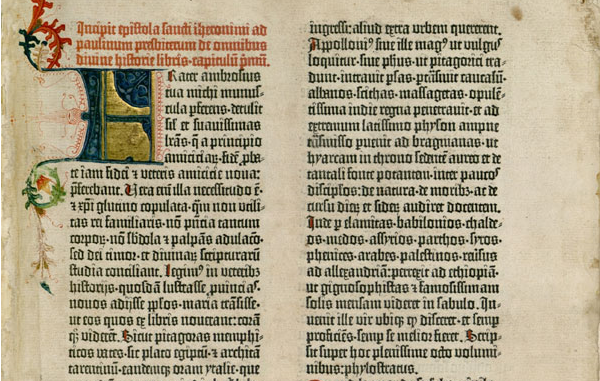 Incipit epistola sancti iheronimi ad
paulinum presbiterum de omnibus
divine historie libris. capitulū pmū.
Frater ambrosius
tua michi munus-
cula pferens. detulit
sil' et suauissimas
lrās. q̄ a principio
amiciciaꝝ. fidē pba-
te iam fidei ⁊ veteris amicicie noua:
pferebant. Vera em̄ illa necessitudo ē.
⁊ xp̄i glutino copulata. qm̄ non vtili-
tas rei familiaris. nō pn̄cia tantum
corpoꝝ. nō sbdola ⁊ palpās adulacō.
sed dei timor. et diuinaꝝ scripturaꝝ
studia conciliant. Legim⁹ in veteribꝫ
historijs. quosdā lustrasse puincias.
nouos adijsse pplos. maria trāsisse.
ut eos quos ex libris nouerant: corā
qꝫ viderēt. Sicut pitagoras memphi-
ticos vates. sic plato egiptū. ⁊ architā
tarentinū. eandemqꝫ oram ytalie. que
ingressi: aliud extra urbem quererent.
Appolloni⁹ siue ille mag⁹ ut vulgus
loquitur. siue phus. ut pitagorici tra-
dunt. intrauit psas. ptrāsiuit caucasū.
albanos. scithas. massagetas. opulē-
tissima indie regna penetrauit. et ad
extremum latissimo physon ampne
trāsmisso puenit ad bragmanas. ut
hyarcam in throno sedentē aureo et de
tantali fonte potantem. inter paucos
discipłos: de natura. de moribꝫ. ac de
cursu dieꝝ et sideꝝ audiret docentem.
Inde p elamitas. babilonios. chalde-
os. medos. assyrios. parthos. syros.
phenices. arabes. palestinos. reūsus
ad allexandriā: perrexit ad ethiopiā.
ut gignosophistas ⁊ famosissimam
solis mensam videret in sabulo. In-
uenit ille vir ubiqꝫ qꝫ disceret. ⁊ semp
proficiēs. semp se melior fieret. Scrip-
sit super hoc plenissime octo volumi-
nibus: phylostratus.